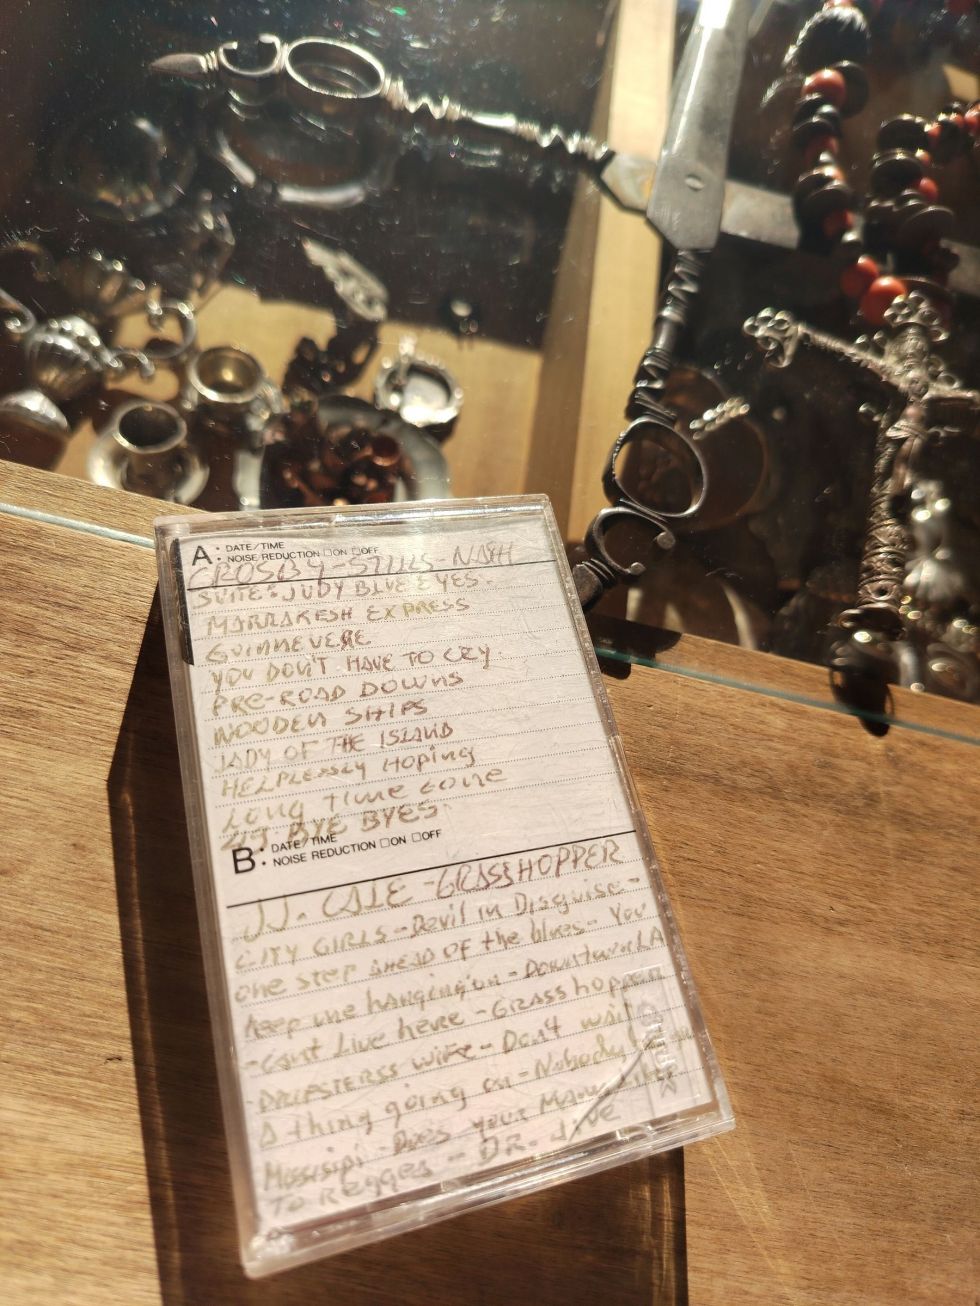 A: DATE/TIME
NOISE REDUCTION □ON □OFF
CROSBY-STILLS-NASH
SUITE: JUDY BLUE EYES.
MARRAKESH EXPRESS
GUINNEVERE
YOU DON'T HAVE TO CRY.
PRE-ROAD DOWNS
WOODEN SHIPS
LADY OF THE ISLAND
HELPLESSLY HOPING
LONG TIME GONE
49 BYE BYES
B: DATE/TIME
NOISE REDUCTION □ON □OFF
JJ. CALE - GRASSHOPPER
CITY GIRLS - Devil in Disguise -
one step AHEAD OF the blues - You
keep me hanging on - Downtown LA
- Cant Live here - Grasshopper
- DRIFTERSS WIFE - Don't wait
A thing going on - Nobody
Missisipi - Does your Mama like
To Reggea - DR. JIVE